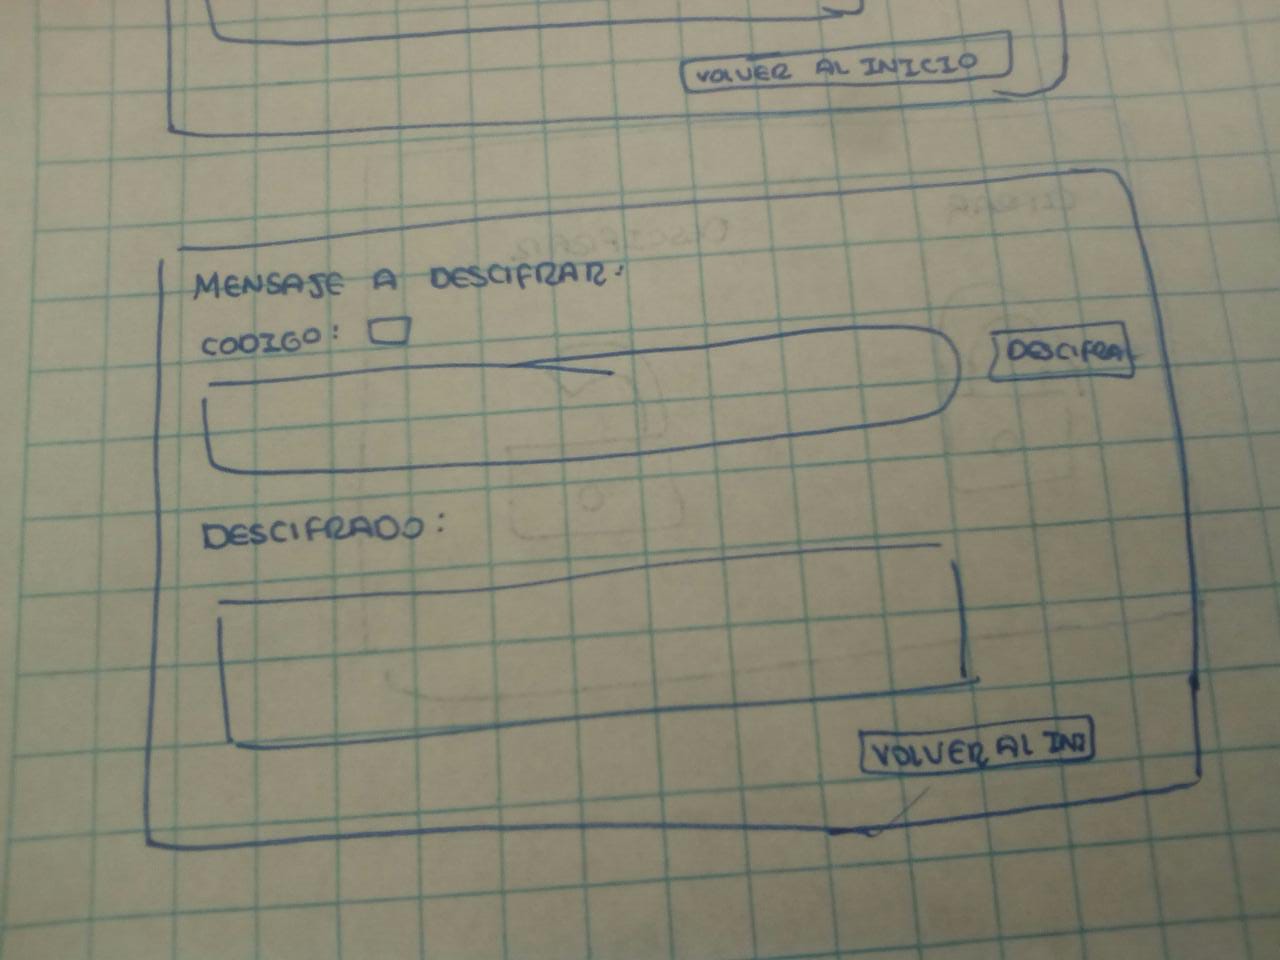 VOLVER AL INICIO
MENSAJE A DESCIFRAR:
CODIGO:
DESCIFRA
DESCIFRADO:
VOLVER AL INI